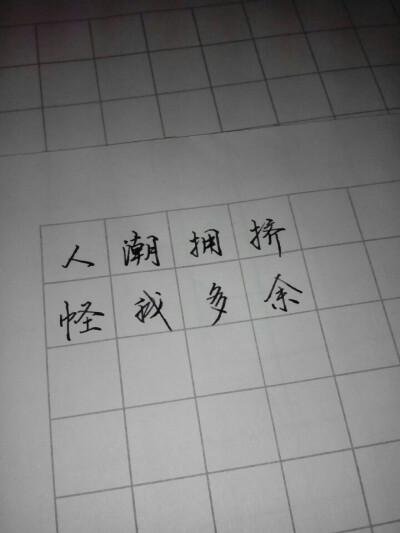 人潮拥挤
怪我多余